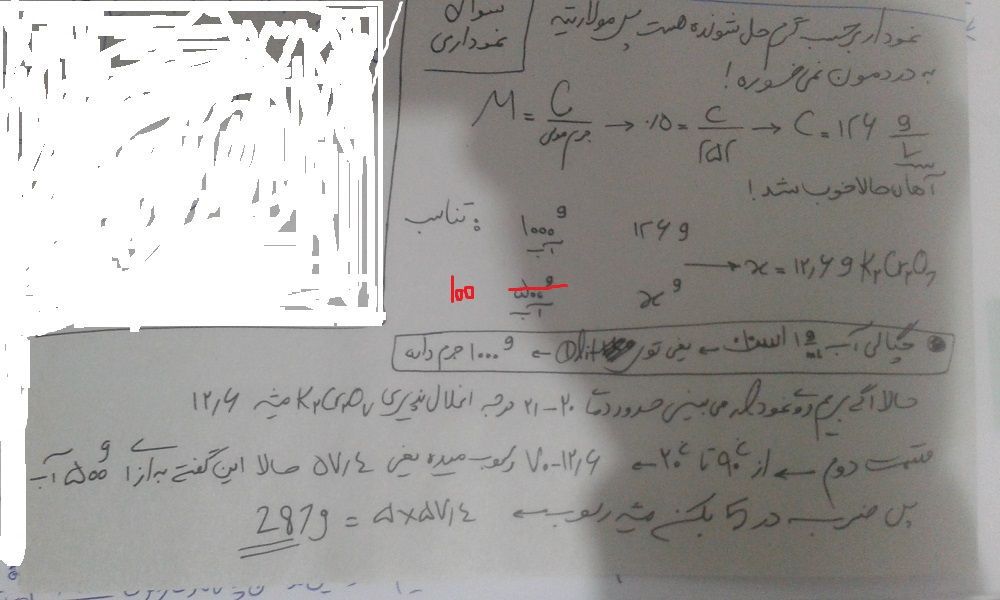 سوال
نموداری
نمودار برحسب گرم حل شونده هست پس مولاریته
به دردمون نمی خوره!
M = C / جرم مولی → ۰/۵ = C / ۲۵۲ → C = ۱۲۶ g
آهان حالا خوب شد!
تناسب: ۱۰۰۰ g آب ۱۲۶ g
→ x = ۱۲,۶ g K₂Cr₂O₇
۱۰۰ آب x g
چگالی آب ۱ g/ml است ← یعنی تو ۱ lit ← ۱۰۰۰ g جرم داره
حالا اگه بریم رو نمودار می بینی حدود دمای ۲۰-۲۱ درجه انحلال پذیری K₂Cr₂O₇ میشه ۱۲,۶
قسمت دوم ← از ۹۰°C تا ۲۰°C ← ۷۰-۱۲,۶ رسوب میده یعنی ۵۷,۴ حالا این گفته به ازا ۵۰۰ g آب
پس ضرب در 5 بکن میشه رسوب ← ۵×۵۷,۴ = 287g